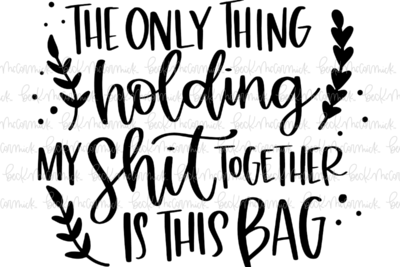 THE ONLY THING
holding
MY shit TOGETHER
IS THIS BAG